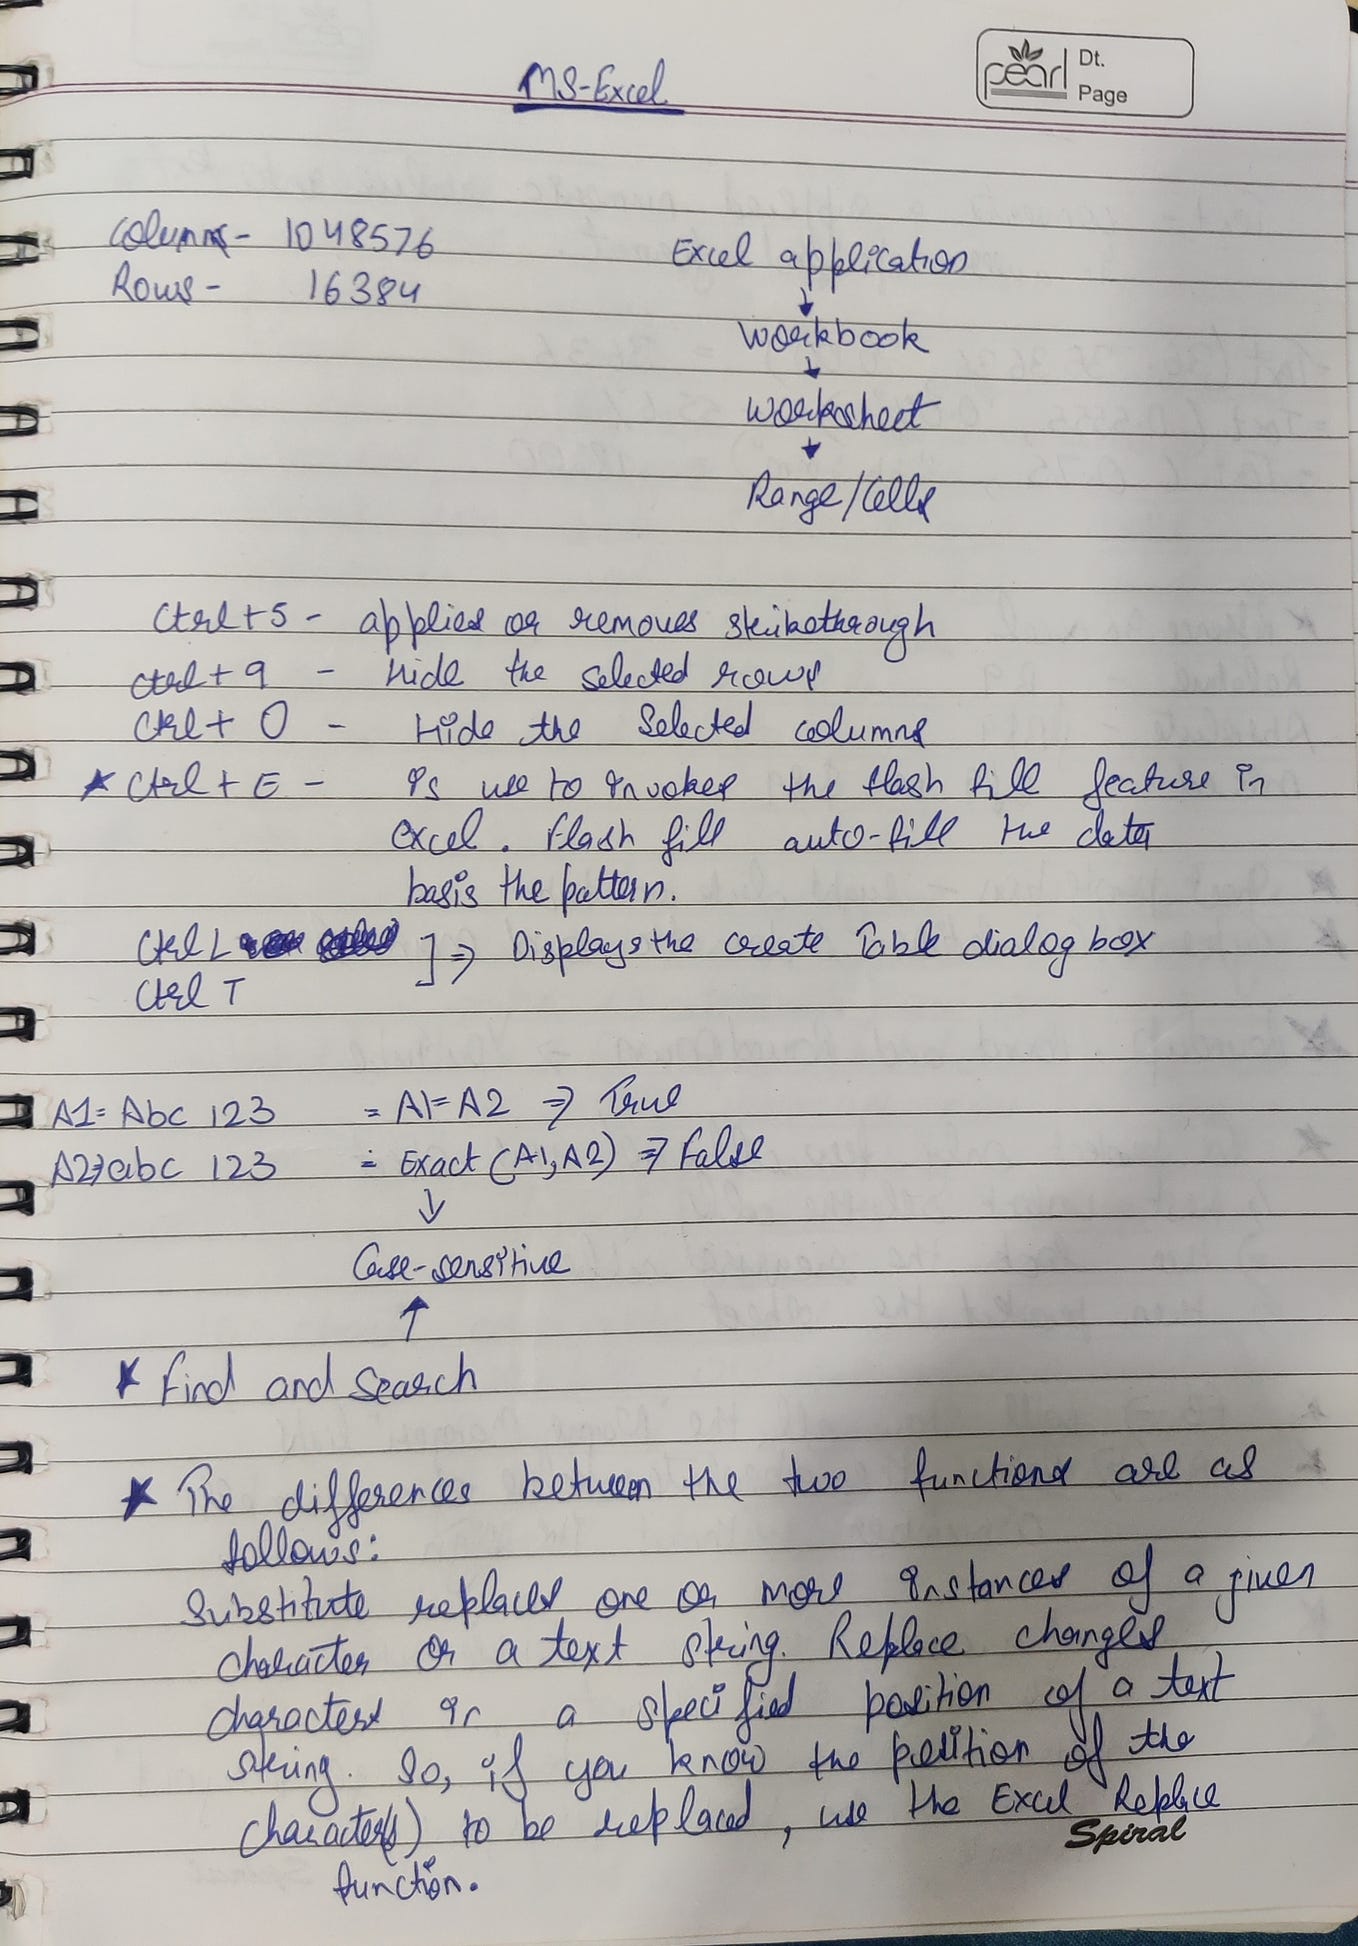 MS-Excel
pearl
Dt.
Page
Columns - 1048576
Rows - 16384
Excel application
↓
Workbook
↓
Worksheet
↓
Range/Cells
Ctrl+5 - applies or removes strikethrough
Ctrl+9 - Hide the selected rows
Ctrl+0 - Hide the Selected columns
* Ctrl+E - Is use to invokes the flash fill feature in
excel. Flash fill auto-fill the data
basis the pattern.
Ctrl L ] ⇒ Displays the create Table dialog box
Ctrl T
A1= Abc 123 = A1=A2 ⇒ True
A2=abc 123 = Exact (A1,A2) ⇒ False
↓
Case-sensitive
↑
* Find and Search
* The differences between the two functions are as
follows:
Substitute replaces one or more instances of a given
character or a text string. Replace changes
characters in a specified position of a text
string. So, if you know the position of the
character(s) to be replaced, use the Excel Replace
function.
Spiral